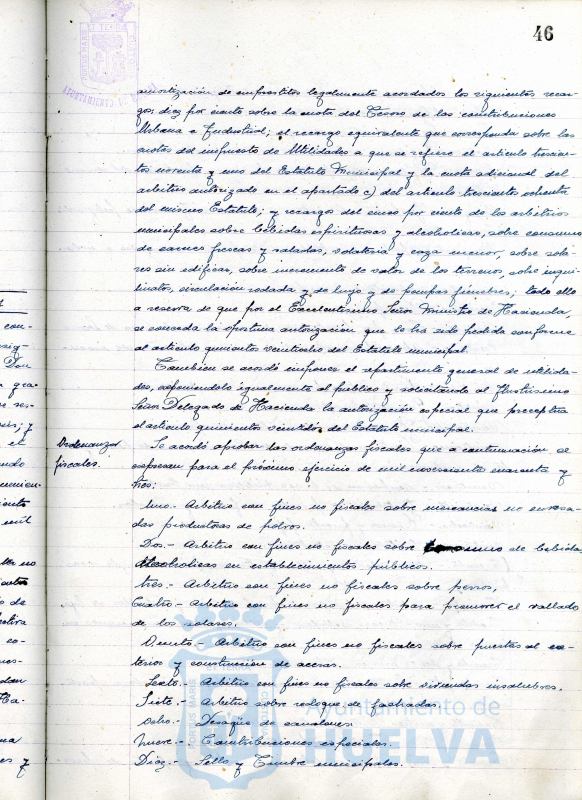 46
AYUNTAMIENTO DE
amortización de empréstitos legalmente acordados los siguientes recar-
gos; diez por ciento sobre la cuota del Tesoro de las contribuciones
Urbana e Industrial; el recargo equivalente que corresponda sobre las
cuotas del impuesto de Utilidades a que se refiere el articulo trescien-
tos noventa y uno del Estatuto Municipal y la cuota adicional del
arbitrio autorizado en el apartado c) del articulo trescientos ochenta
del mismo Estatuto; y recargos del cinco por ciento de los arbitrios
municipales sobre bebidas espirituosas y alcoholicas, sobre consumo
de carnes frescas y saladas, volateria y caza menor, sobre sola-
res sin edificar, sobre incremento de valor de los terrenos, sobre inqui-
linatos, circulación rodada y de lujo y de pompas fúnebres; todo ello
a reserva de que por el Excelentisimo Señor Ministro de Hacienda,
se conceda la oportuna autorización que le ha sido pedida conforme
al articulo quinientos veintiocho del Estatuto municipal.
Tambien se acordó imponer el repartimiento general de utilida-
des, exponiendolo igualmente al publico y solicitando al Ilustrisimo
Señor Delegado de Hacienda la autorización especial que preceptua
el articulo quinientos veintidós del Estatuto municipal.
Ordenanzas
fiscales.
Se acordó aprobar las ordenanzas fiscales que a continuación se
expresan para el próximo ejercicio de mil novecientos cuarenta y
tres:
Uno.- Arbitrio con fines no fiscales sobre mercancias no envasa-
das productoras de polvos.
Dos.- Arbitrio con fines no fiscales sobre consumo de bebidas
alcoholicas en establecimientos públicos.
Tres.- Arbitrio con fines no fiscales sobre perros,
Cuatro.- Arbitrio con fines no fiscales para promover el vallado
de los solares.
Quinto.- Arbitrio con fines no fiscales sobre puertas al ex-
terior y construcción de aceras.
Sexto.- Arbitrio con fines no fiscales sobre viviendas insalubres.
Siete.- Arbitrio sobre revoque de fachadas.
Ocho.- Desagüe de canalones.
Nueve.- Contribuciones especiales.
Diez.- Sello y Timbre municipales.
Ayuntamiento de
HUELVA